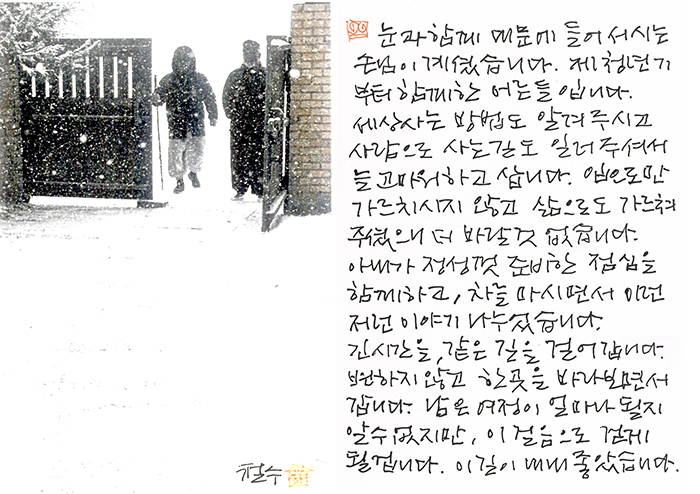 눈과 함께 대문에 들어 서시는
손님이 계셨습니다. 제 청년기
부터 함께한 어른들입니다.
세상사는 방법도 알려주시고
사람으로 사는길도 일러주셔서
늘 고마워하고 삽니다. 입으로만
가르치시지 않고 삶으로도 가르쳐
주셨으니 더 바랄것 없습니다.
아내가 정성껏 준비한 점심을
함께하고, 차를 마시면서 이런
저런 이야기 나누었습니다.
긴시간을, 같은 길을 걸어갑니다.
않고 한곳을 바라보면서
갑니다. 남은 여정이 얼마나 될지
알수 없지만, 이 걸음으로 걷게
될겁니다. 이길이 내내 좋았습니다.
철수